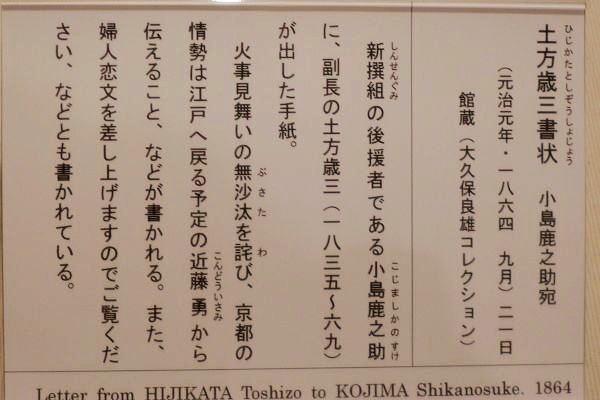 ひじかたとしぞうしょじょう
土方歳三書状 小島鹿之助宛
(元治元年・一八六四 九月)二一日
館蔵(大久保良雄コレクション)
しんせんぐみ こじましかのすけ
新撰組の後援者である小島鹿之助
に、副長の土方歳三(一八三五〜六九)
が出した手紙。
ぶさた わ
火事見舞いの無沙汰を詫び、京都の
こんどういさみ
情勢は江戸へ戻る予定の近藤勇から
伝えること、などが書かれる。また、
婦人恋文を差し上げますのでご覧くだ
さい、などとも書かれている。
Letter from HIJIKATA Toshizo to KOJIMA Shikanosuke. 1864